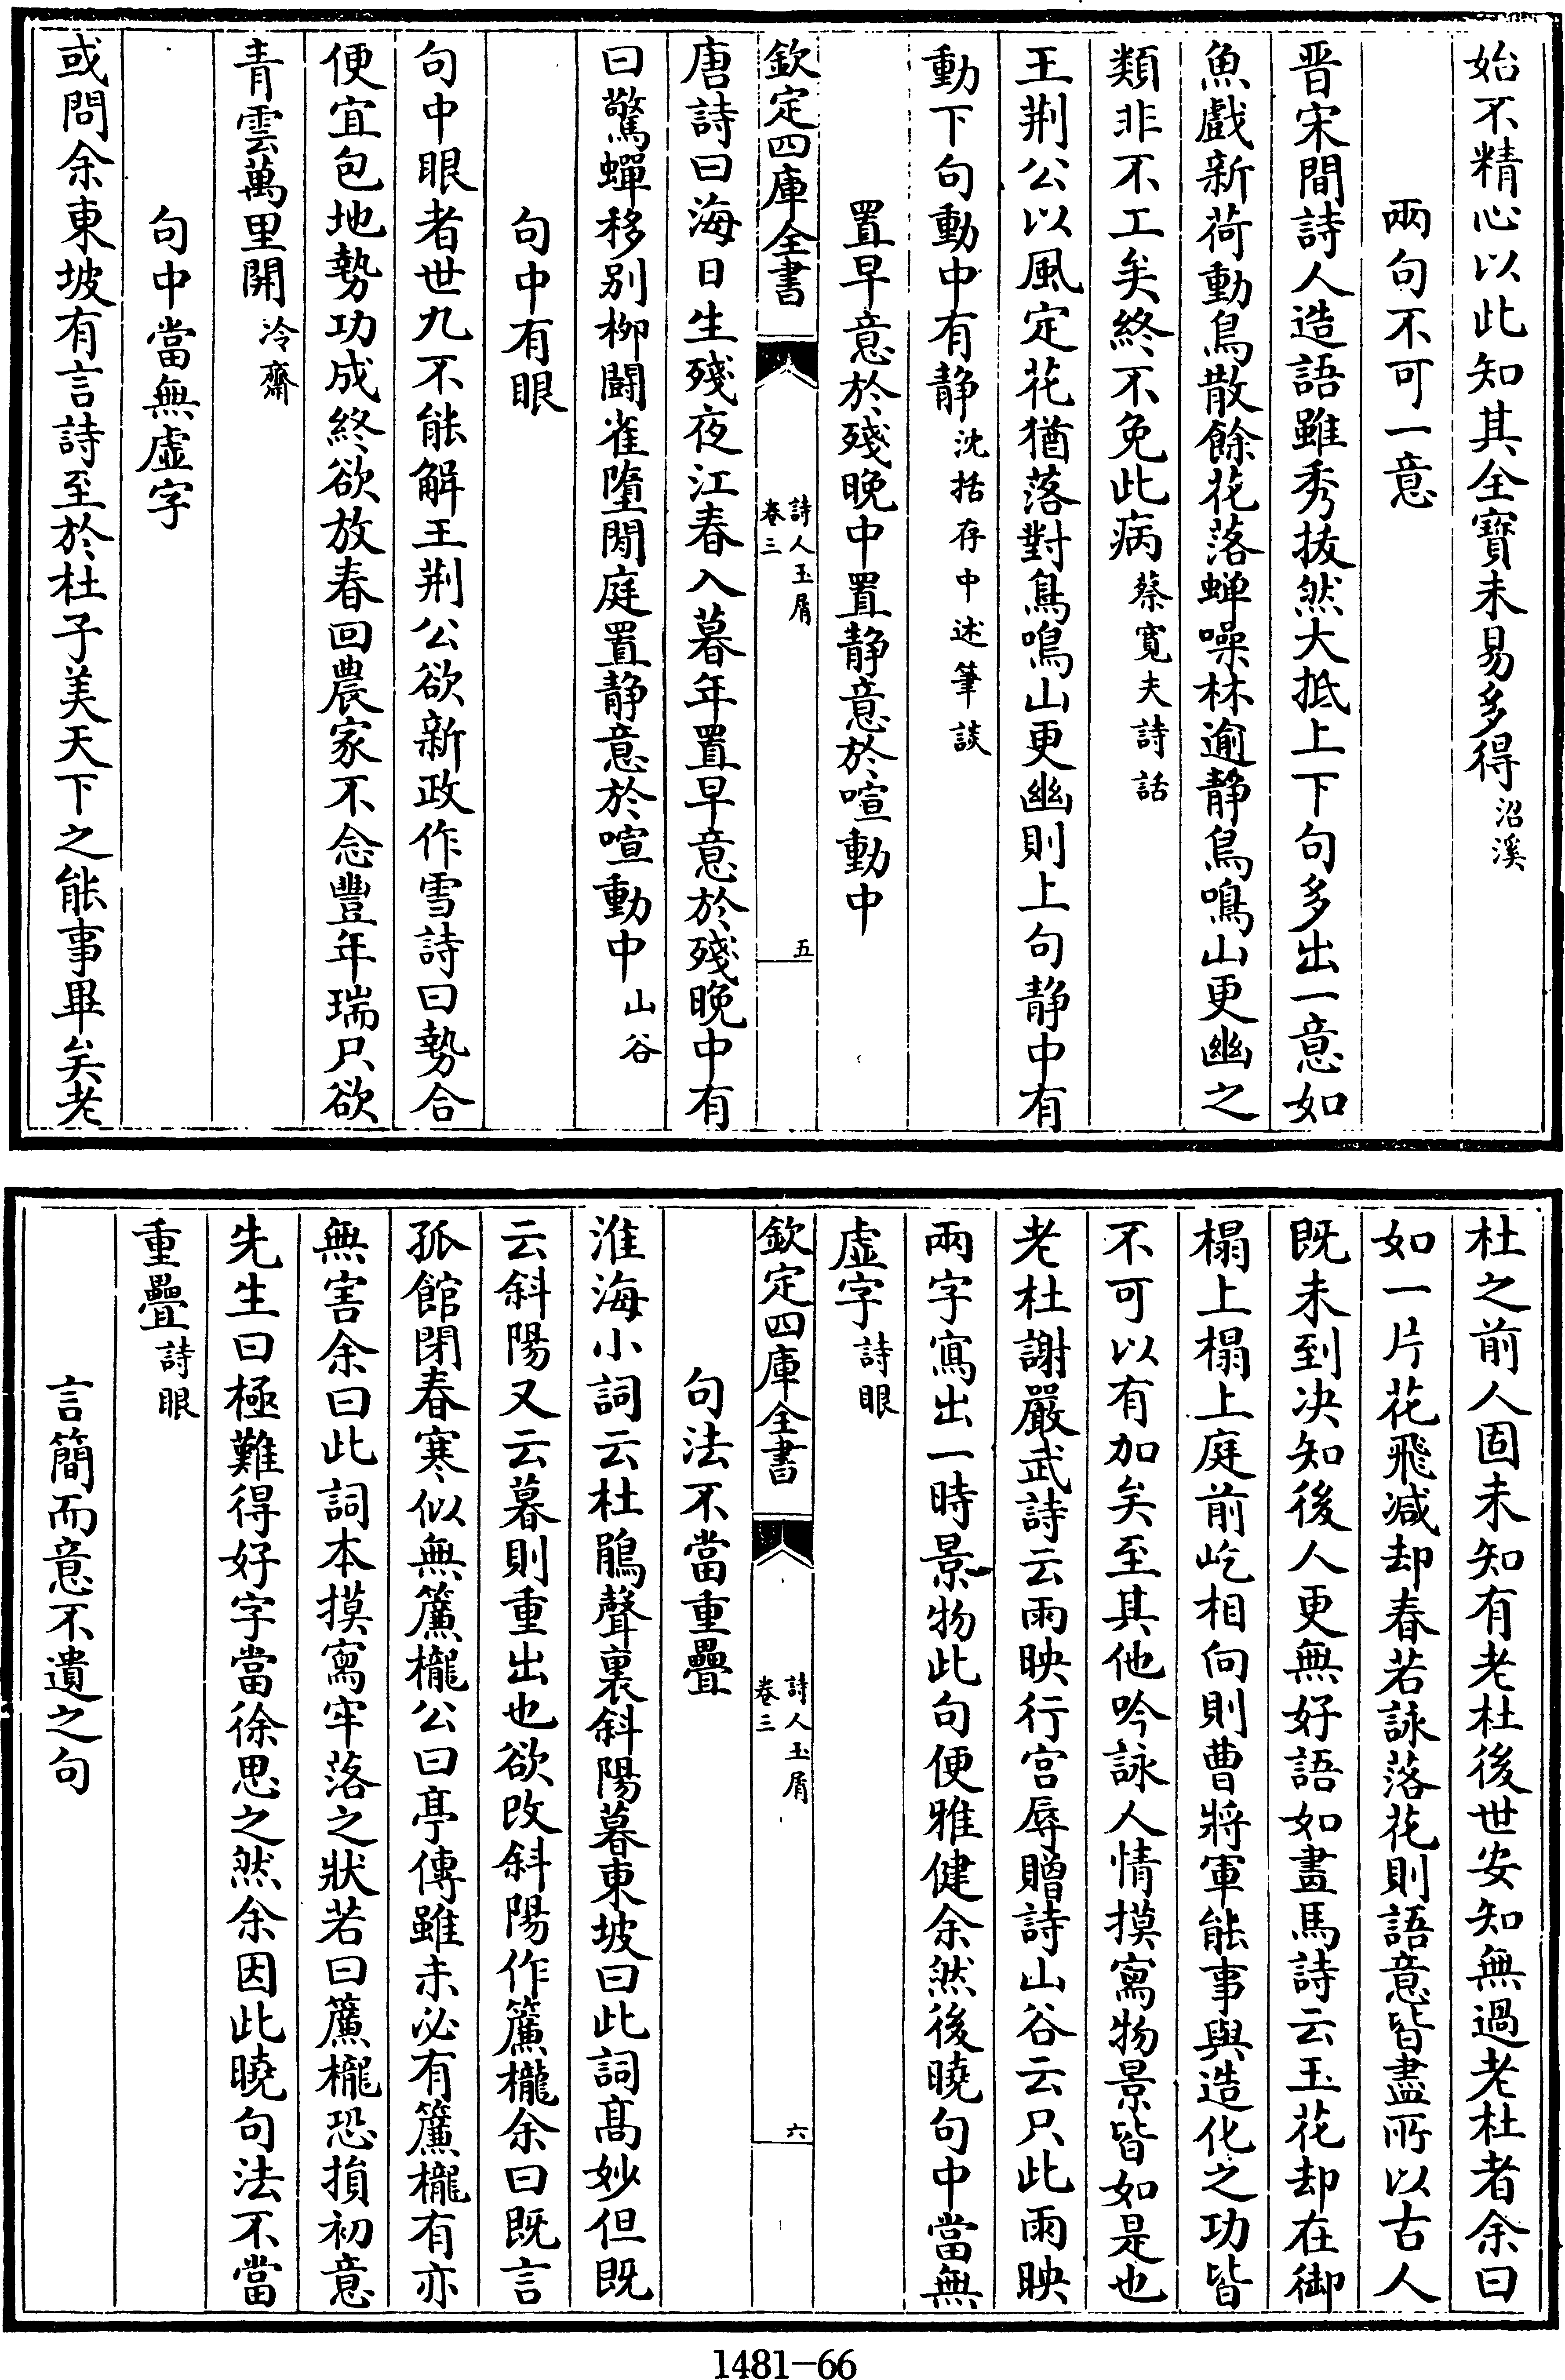 始不精心以此知其全寶未易多得沼溪
兩句不可一意
晋宋間詩人造語雖秀拔然大抵上下句多出一意如
魚戲新荷動鳥散餘花落蟬噪林逾靜鳥鳴山更幽之
類非不工矣終不免此病蔡寬夫詩話
王荆公以風定花猶落對鳥鳴山更幽則上句静中有
動下句動中有静沈括存中述筆談
置早意於殘晚中置静意於喧動中
欽定四庫全書 詩人玉屑 卷三 五
唐詩曰海日生殘夜江春入暮年置早意於殘晚中有
曰驚蟬移别柳鬭雀墮閒庭置静意於喧動中山谷
句中有眼
句中眼者世九不能解王荆公欲新政作雪詩曰勢合
便宜包地勢功成終欲放春回農家不念豐年瑞只欲
青雲萬里開冷齋
句中當無虚字
或問余東坡有言詩至於杜子美天下之能事畢矣老
杜之前人固未知有老杜後世安知無過老杜者余曰
如一片花飛减却春若詠落花則語意皆盡所以古人
既未到决知後人更無好語如畫馬詩云玉花却在御
榻上榻上庭前屹相向則曹將軍能事與造化之功皆
不可以有加矣至其他吟詠人情摸寫物景皆如是也
老杜謝嚴武詩云雨映行宫辱贈詩山谷云只此雨映
兩字寫出一時景物此句便雅健余然後曉句中當無
虚字詩眼
欽定四庫全書 詩人玉屑 卷三 六
句法不當重疊
淮海小詞云杜鵑聲裏斜陽暮東坡曰此詞高妙但既
云斜陽又云暮則重出也欲改斜陽作簾櫳余曰既言
孤館閉春寒似無簾櫳公曰亭傳雖未必有簾櫳有亦
無害余曰此詞本摸寫牢落之狀若曰簾櫳恐損初意
先生曰極難得好字當徐思之然余因此曉句法不當
重疊詩眼
言簡而意不遺之句
1481-66